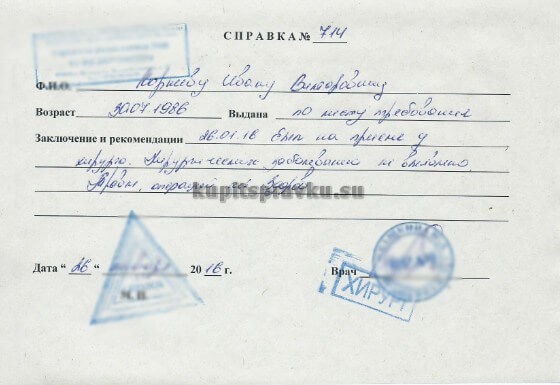 СПРАВКА № 714
Ф.И.О. Корневу Ивану Викторовичу
Возраст 30.07.1986 Выдана по месту требования
Заключение и рекомендации 26.01.16 Был на приеме у
хирурга. Хирургических заболеваний не выявлено
Травм, операций не
kupitspravku.su
Дата " 26 " января 2016 г. Врач
М.П.
ХИРУРГ